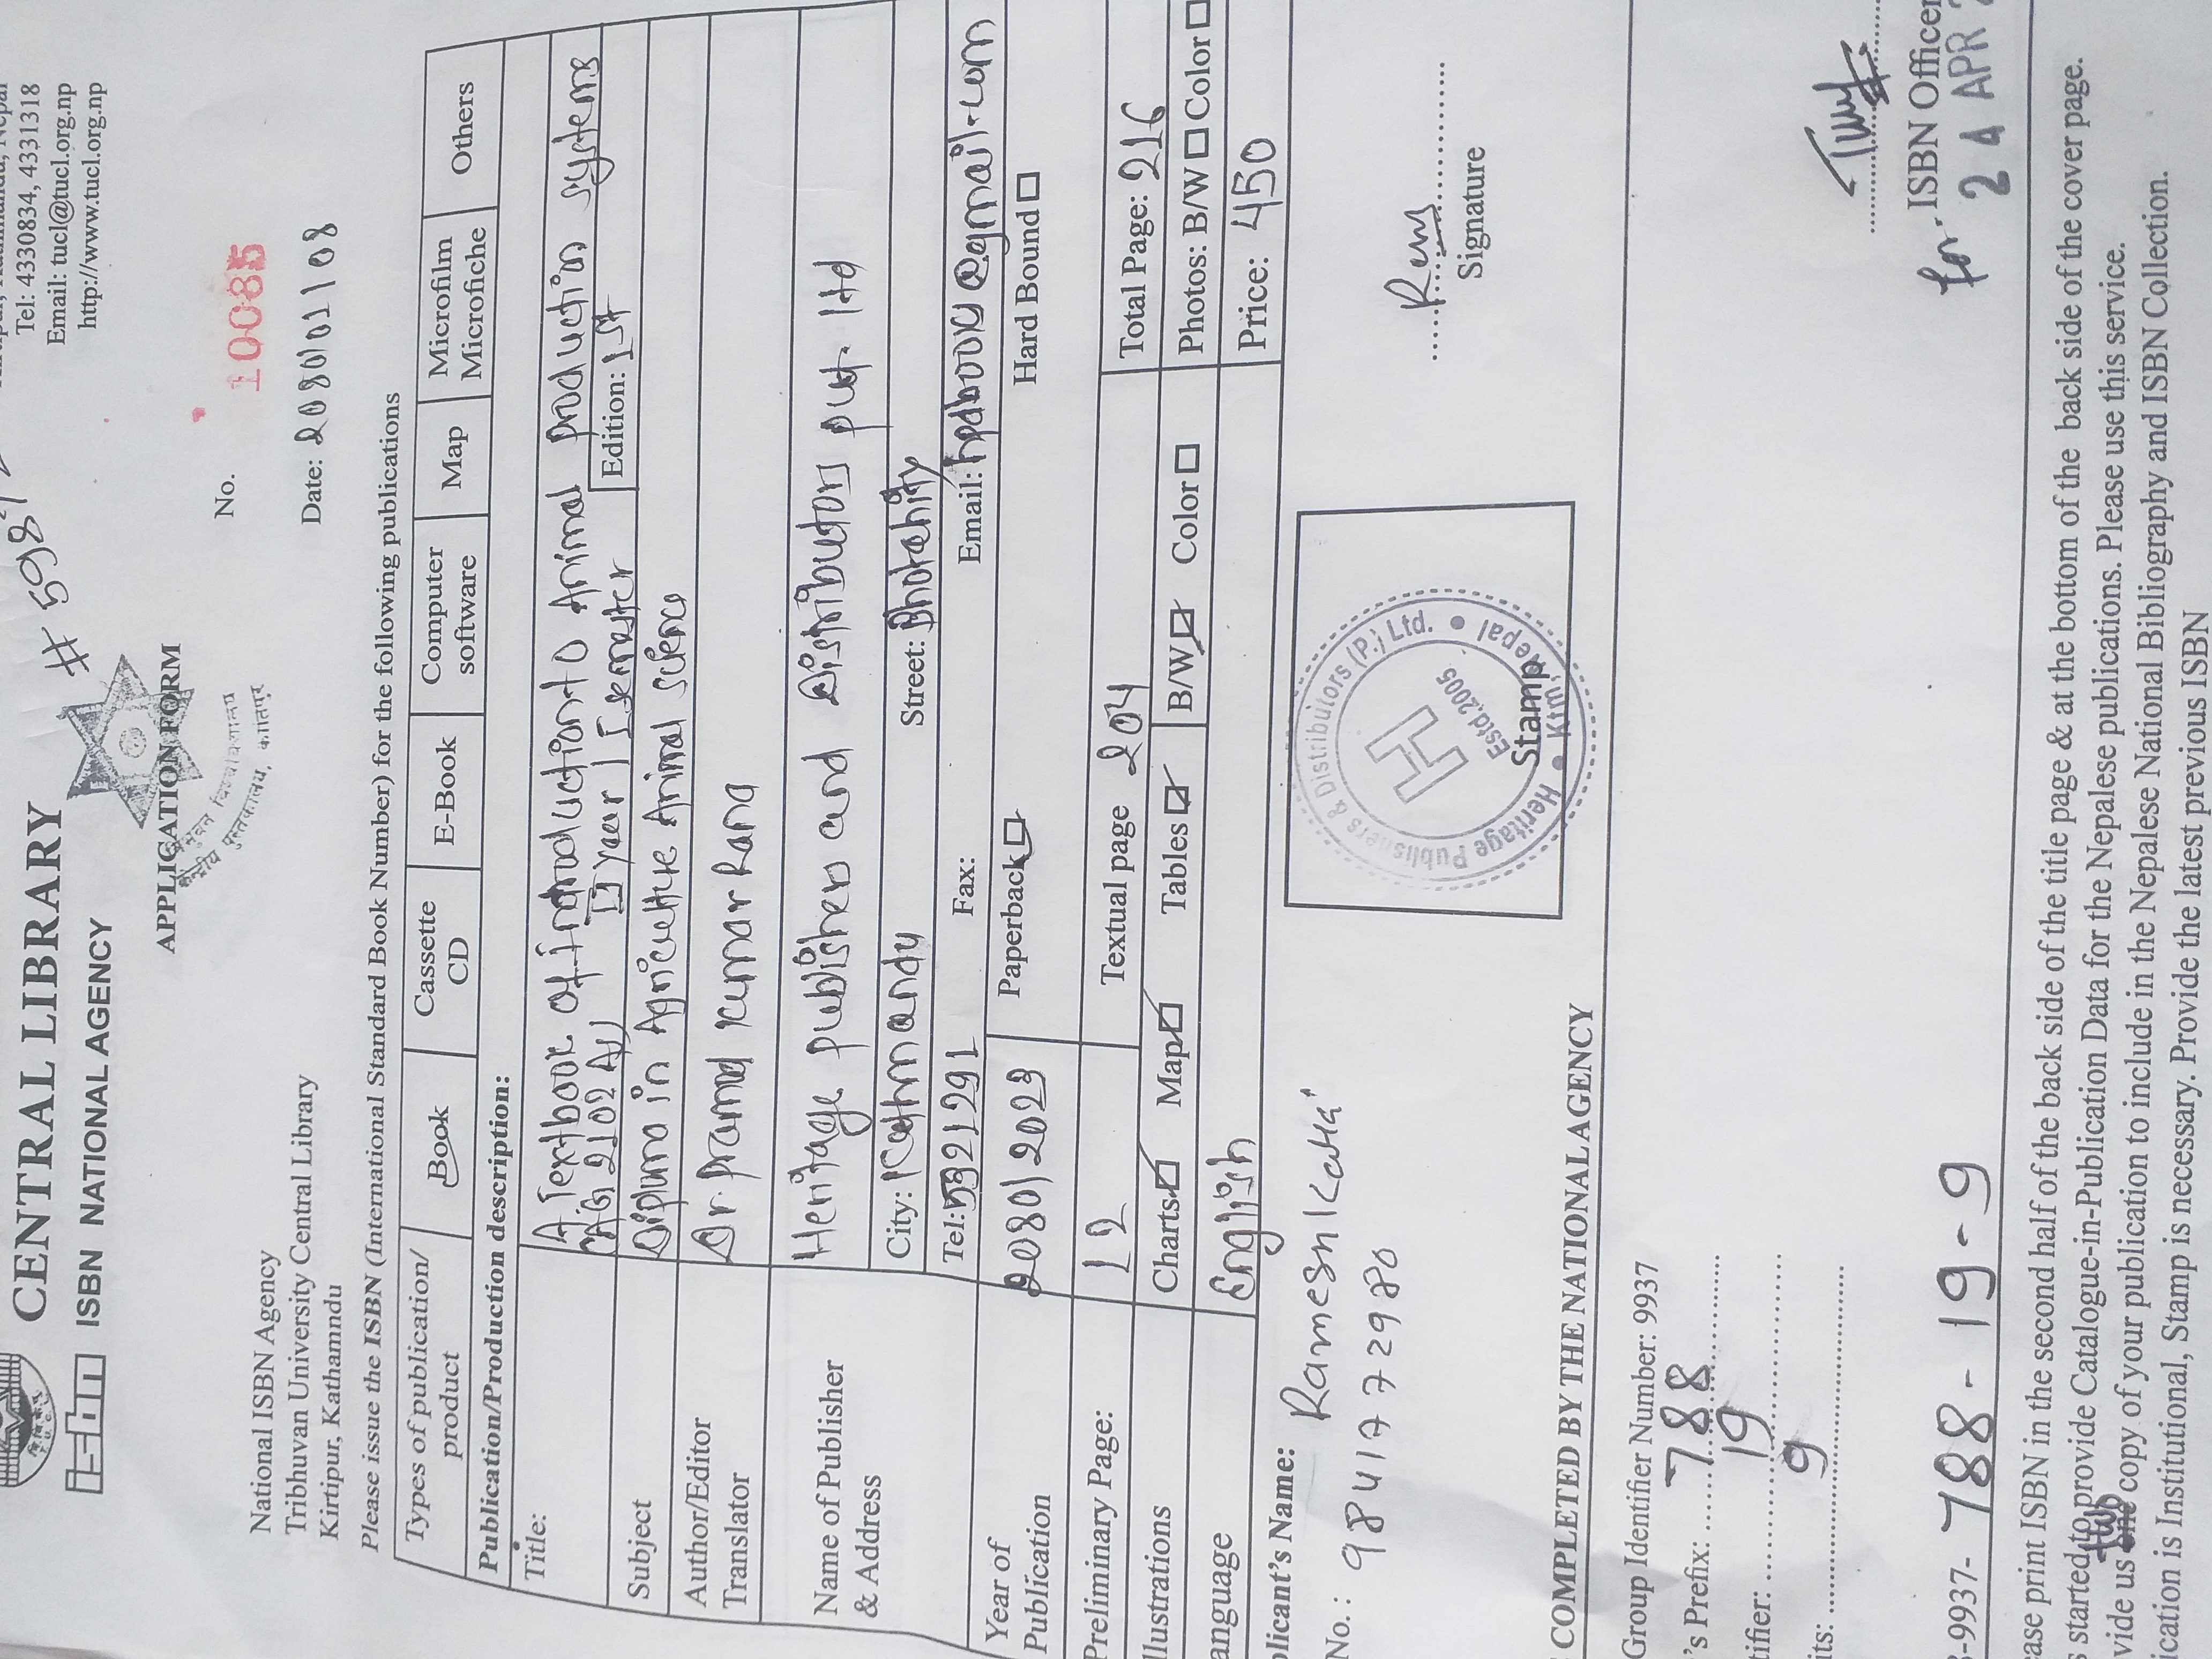 CENTRAL LIBRARY
ISBN NATIONAL AGENCY
Tel: 4330834, 4331318
Email: tucl@tucl.org.np
http://www.tucl.org.np
APPLICATION FORM
केन्द्रीय पुस्तकालय, कीर्तिपुर
No. 10085
Date: 2080/01/08
National ISBN Agency
Tribhuvan University Central Library
Kirtipur, Kathamndu
Please issue the ISBN (International Standard Book Number) for the following publications
Types of publication/ product Book Cassette CD E-Book Computer software Map Microfilm Microfiche Others
Publication/Production description:
Title: A Textbook of Introduction to Animal production systems
II year / I semester Edition: 1st
Subject Diploma in Agriculture Animal science
Author/Editor Translator Dr. pramod kumar Rana
Name of Publisher & Address Heritage publishers and Distributors pvt. ltd
City: Kathmandu Street: Bhotahity
Tel: 5321291 Fax: Email: hpdbook@gmail.com
Year of Publication 2080/2023 Paperback Hard Bound
Preliminary Page: 12 Textual page 204 Total Page: 216
llustrations Charts Map Tables B/W Color Photos: B/W Color
anguage English Price: 450
plicant's Name: Ramesh Kattel
No.: 9841772980
Signature
Heritage Publishers & Distributors (P.) Ltd.
Ktm, Nepal
H
Estd.2005
Stamp
COMPLETED BY THE NATIONAL AGENCY
Group Identifier Number: 9937
's Prefix: 788
tifier: 19
its: 9
for ISBN Officer
24 APR
-9937-788-19-9
ase print ISBN in the second half of the back side of the title page & at the bottom of the back side of the cover page.
s started to provide Catalogue-in-Publication Data for the Nepalese publications. Please use this service.
vide us two copy of your publication to include in the Nepalese National Bibliography and ISBN Collection.
ication is Institutional, Stamp is necessary. Provide the latest previous ISBN